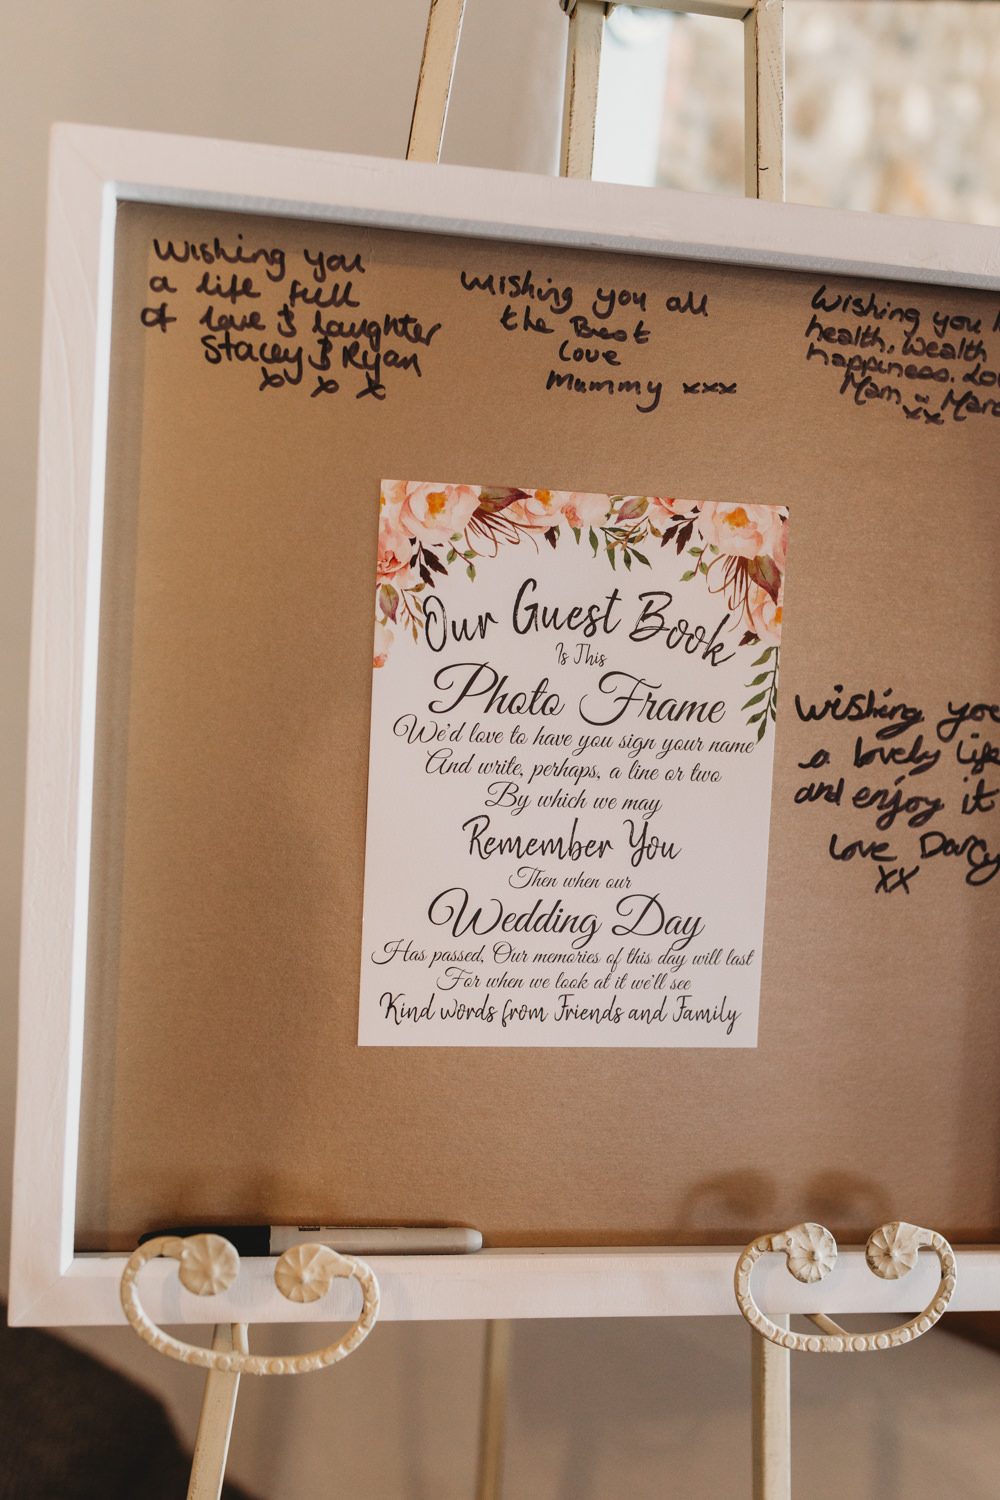 Wishing you
a life full
of love & laughter
Stacey & Ryan
x x x
Wishing you all
the Best
Love
Mummy xxx
Wishing you
health, Wealth
happiness. Lo
Mam
xx
Our Guest Book
Is This
Photo Frame
We'd love to have you sign your name
And write, perhaps, a line or two
By which we may
Remember You
Then when our
Wedding Day
Has passed, Our memories of this day will last
For when we look at it we'll see
Kind words from Friends and Family
Wishing you
a lovely life
and enjoy it
Love Darcy
xx